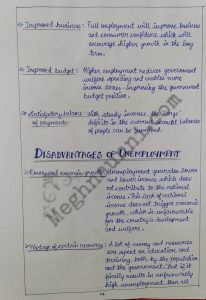 → Improved business : Full employment will improve business
and consumer confidence which will
encourage higher growth in the long
term.
→ Improved budget : Higher employment reduces government
welfare spending and enable more
income taxes - improving the government
budget position.
→ Satisfactory balance : With steady income, the large
of payments : deficits in the current account balances
of people can be improved.
DISADVANTAGES OF UNEMPLOYMENT
→ Decreased economic growth : Unemployment generates lower
and lower income, which does
not contribute to the national
income. This lack of national
income does not trigger economic
growth, which is unfavourable
for the country's development
and welfare.
→ Wastage of certain resources : A lot of money and resources
are spent on education and
training, both by the population
and the government. But if it
finally results in
high unemployment, then all